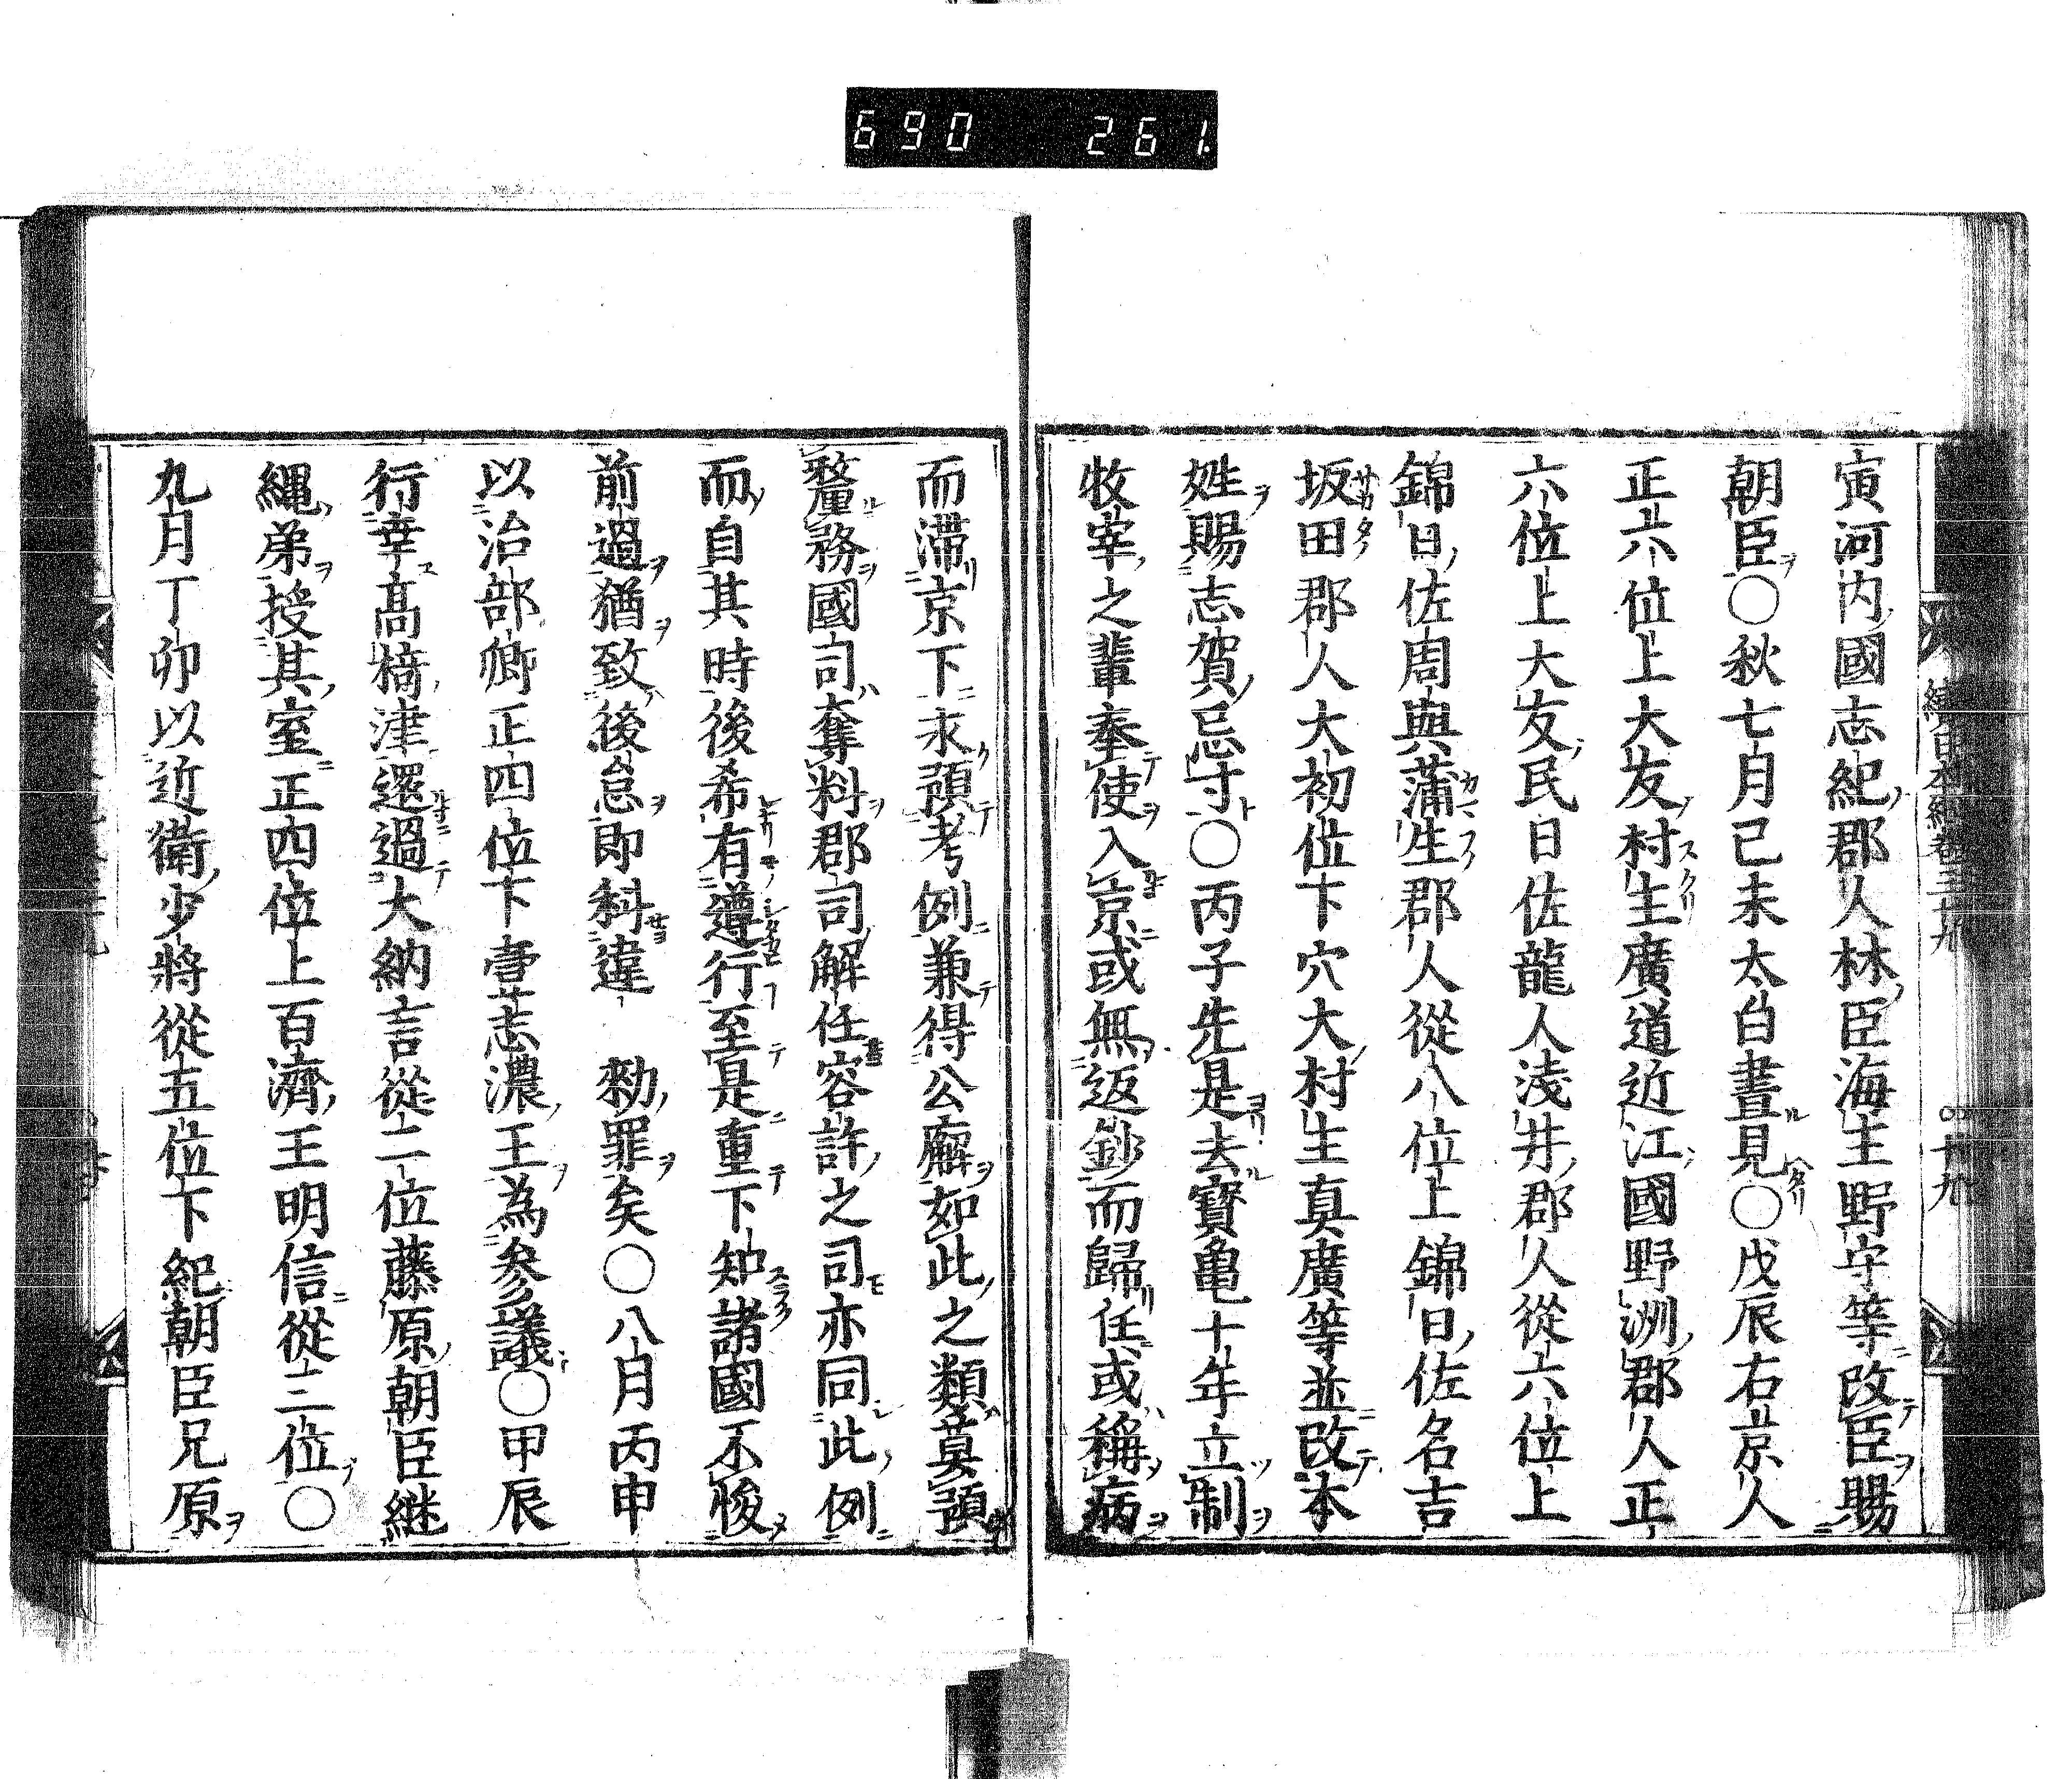 690 261.
寅河内國志紀郡人林臣海主野守等改臣賜
朝臣〇秋七月己未太白晝見〇戊辰右京人
正六位上大友村主廣道近江國野洲郡人正
六位上大友民日佐龍人淺井郡人從六位上
錦日佐周與蒲生郡人從八位上錦日佐名吉
坂田郡人大初位下穴大村主真廣等並改本
姓賜志賀忌寸〇丙子先是去寶亀十年立制
牧宰之輩奉使入京或無返鈔而歸任或稱病
而滯京下求預考例兼得公廨如此之類莫預
釐務國司奪料郡司解任容許之司亦同此例
而自其時後希有遵行至是重下知諸國不悛
前過猶致後怠即科違 勅罪矣〇八月丙申
以治部卿正四位下壹志濃王為参議〇甲辰
行幸高椅津還過大納言從二位藤原朝臣継
縄弟授其室正四位上百濟王明信從三位〇
九月丁卯以近衛少將從五位下紀朝臣兄原